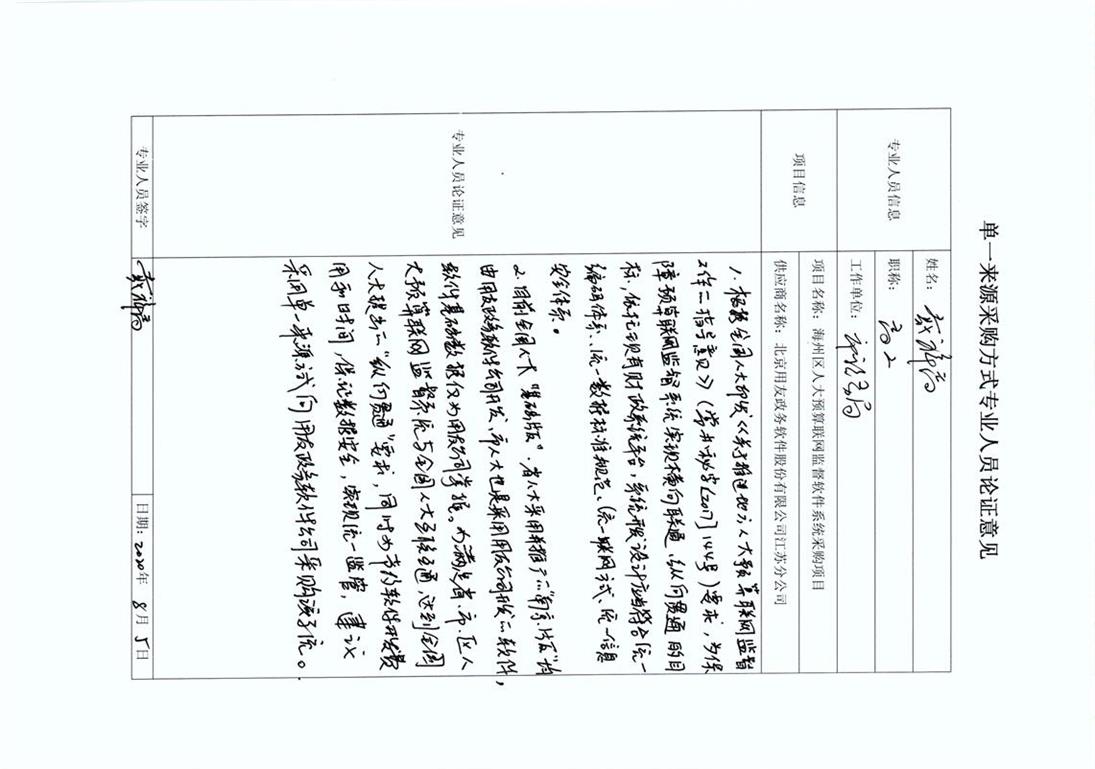 单一来源采购方式专业人员论证意见
专业人员信息
姓名：
职称：高工
工作单位：
项目信息
项目名称：海州区人大预算联网监督软件系统采购项目
供应商名称：北京用友政务软件股份有限公司江苏分公司
专业人员论证意见
1. 根据全国人大印发《关于推进地方人大预算联网监督
工作的指导意见》（常办秘字[2017]144号）要求，为保
障预算联网监督系统实现横向联通、纵向贯通的目
标，依托现有财政系统平台，系统开发设计应当符合统一
编码体系、统一数据标准规范、统一联网方式、统一信息
安全体系。
2. 目前全国人大“基础版”，省人大采用并推广的“南京版”均
由用友政务软件公司开发，市人大也是采用用友公司开发的软件，
软件基础数据仅为用友公司掌握。为满足省、市、区人
大预算联网监督系统与全国人大系统互通，达到全国
人大提出的“纵向贯通”要求，同时为节约软件开发费
用和时间，保证数据安全，实现统一监管，建议
采用单一来源方式向用友政务软件公司采购该系统。
专业人员签字
日期：2020年 8月 5日